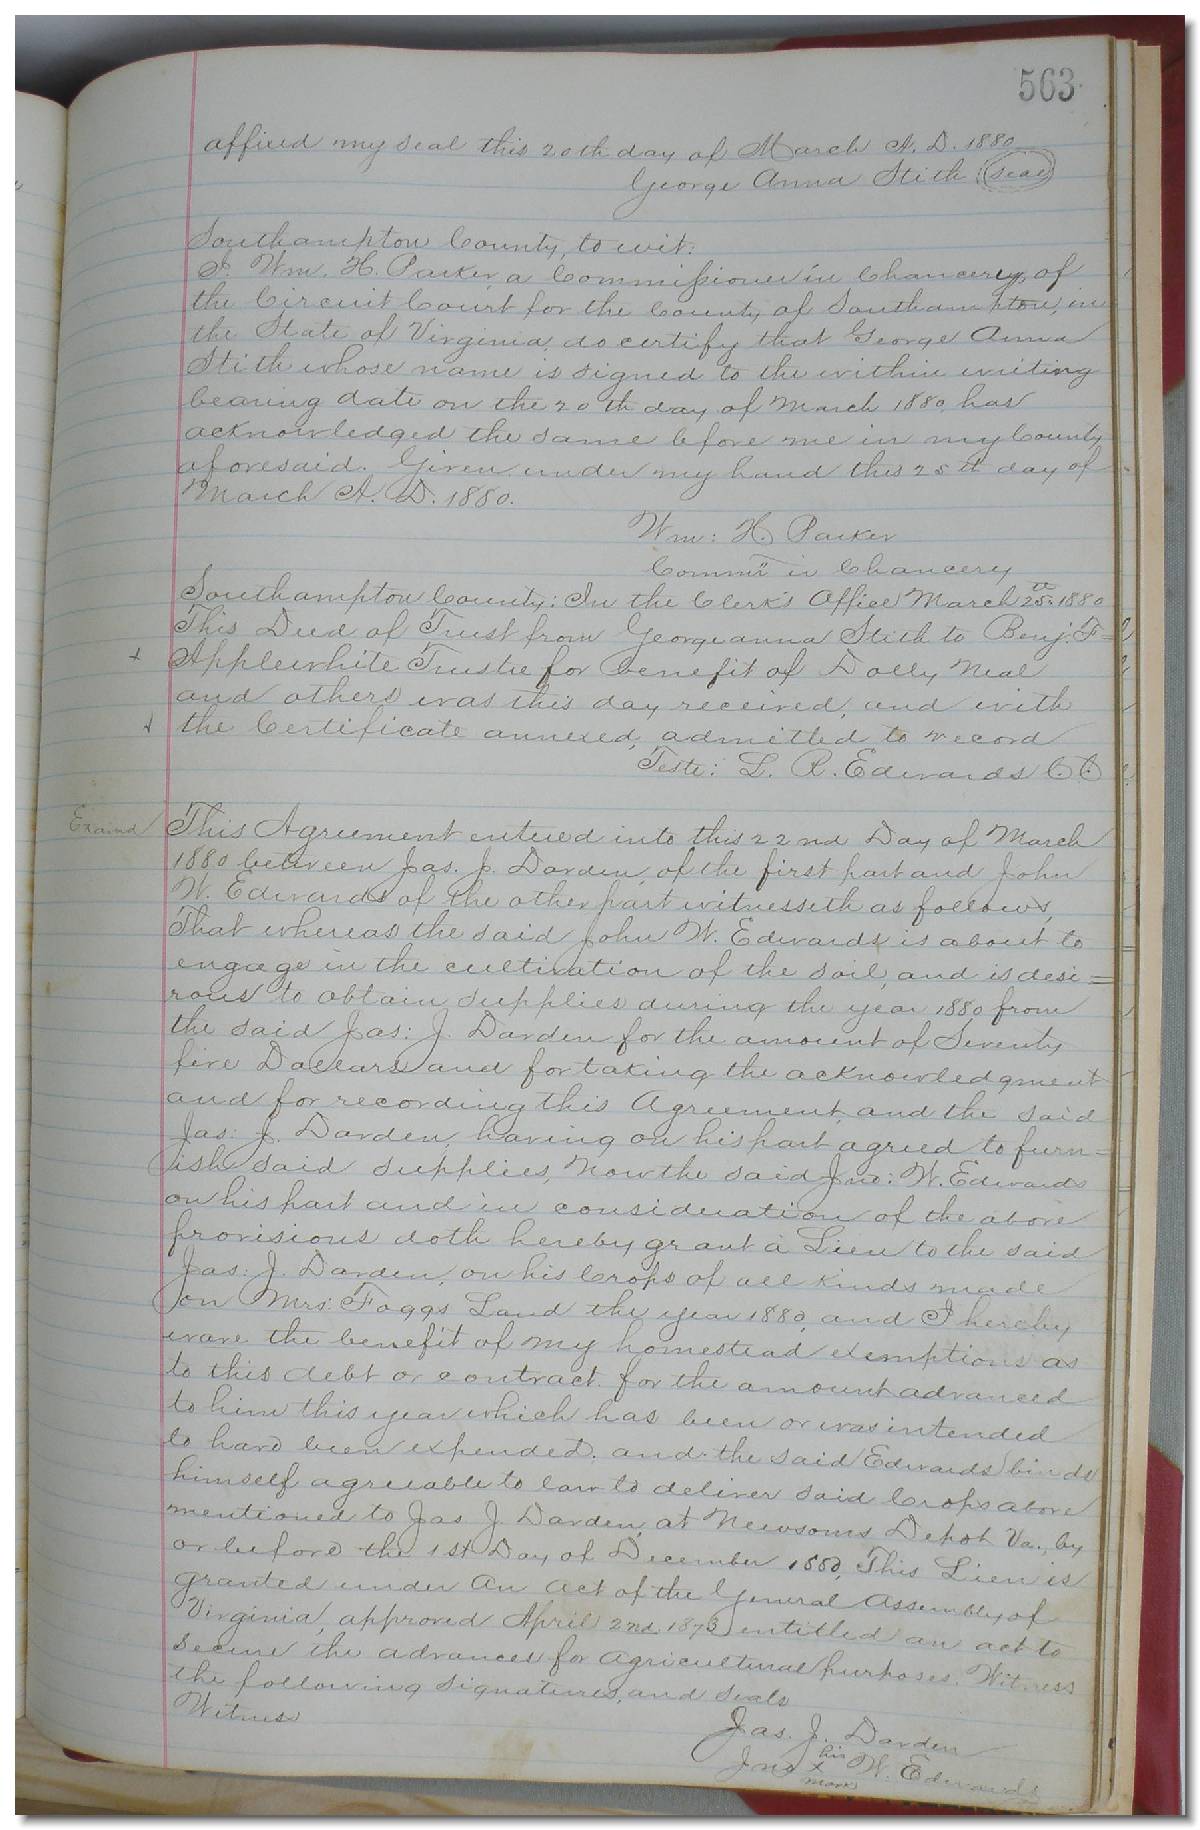 563
affixed my seal this 20th day of March A. D. 1880
George Anna Stith (seal)
Southampton County, to wit:
I. Wm. H. Parker, a Commissioner in Chancery, of
the Circuit Court for the County of Southampton, in
the State of Virginia, do certify that George Anna
Stith whose name is signed to the within writing
bearing date on the 20th day of March 1880, has
acknowledged the same before me in my County
aforesaid. Given under my hand this 25th day of
March A. D. 1880.
Wm: H. Parker
Commr in Chancery
Southampton County: In the Clerk's Office March 25th 1880
This Deed of Trust from Georgeanna Stith to Benj. F=
Applewhite Trustee for benefit of Dolly Neal
and others was this day received, and with
the Certificate annexed, admitted to record
Teste: L. R. Edwards C.C.
Examd
This Agreement entered into this 22nd Day of March
1880 between Jas. J. Darden, of the first part and John
W. Edwards of the other part witnesseth as follows,
That whereas the said John W. Edwards is about to
engage in the cultivation of the soil, and is desi=
rous to obtain supplies during the year 1880 from
the said Jas: J. Darden for the amount of Seventy
five Dollars and for taking the acknowledgment
and for recording this Agreement, and the said
Jas: J. Darden, having on his part agreed to furn=
ish said supplies, Now the said Jno: W. Edwards
on his part and in consideration of the above
provisions doth hereby grant a Lien to the said
Jas: J. Darden, on his Crops of all kinds made
on Mrs: Foggs Land the year 1880, and I hereby
wave the benefit of my homestead exemptions as
to this debt or contract for the amount advanced
to him this year which has been or was intended
to have been expended. and the said Edwards binds
himself agreeable to law to deliver said Crops above
mentioned to Jas J. Darden, at Newsoms Depot Va., by
or before the 1st Day of December 1880, This Lien is
granted under An Act of the General Assembly of
Virginia, approved April 2nd, 1873, entitled an act to
secure the advances for Agricultural purposes. Witness
the following signatures, and seals
Witness
Jas. J. Darden
his
Jno X W. Edwards
mark